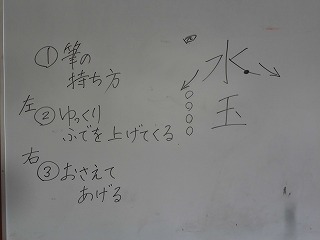 ①筆の
持ち方
左②ゆっくり
ふでを上げてくる
右③おさえて
あげる
水
玉